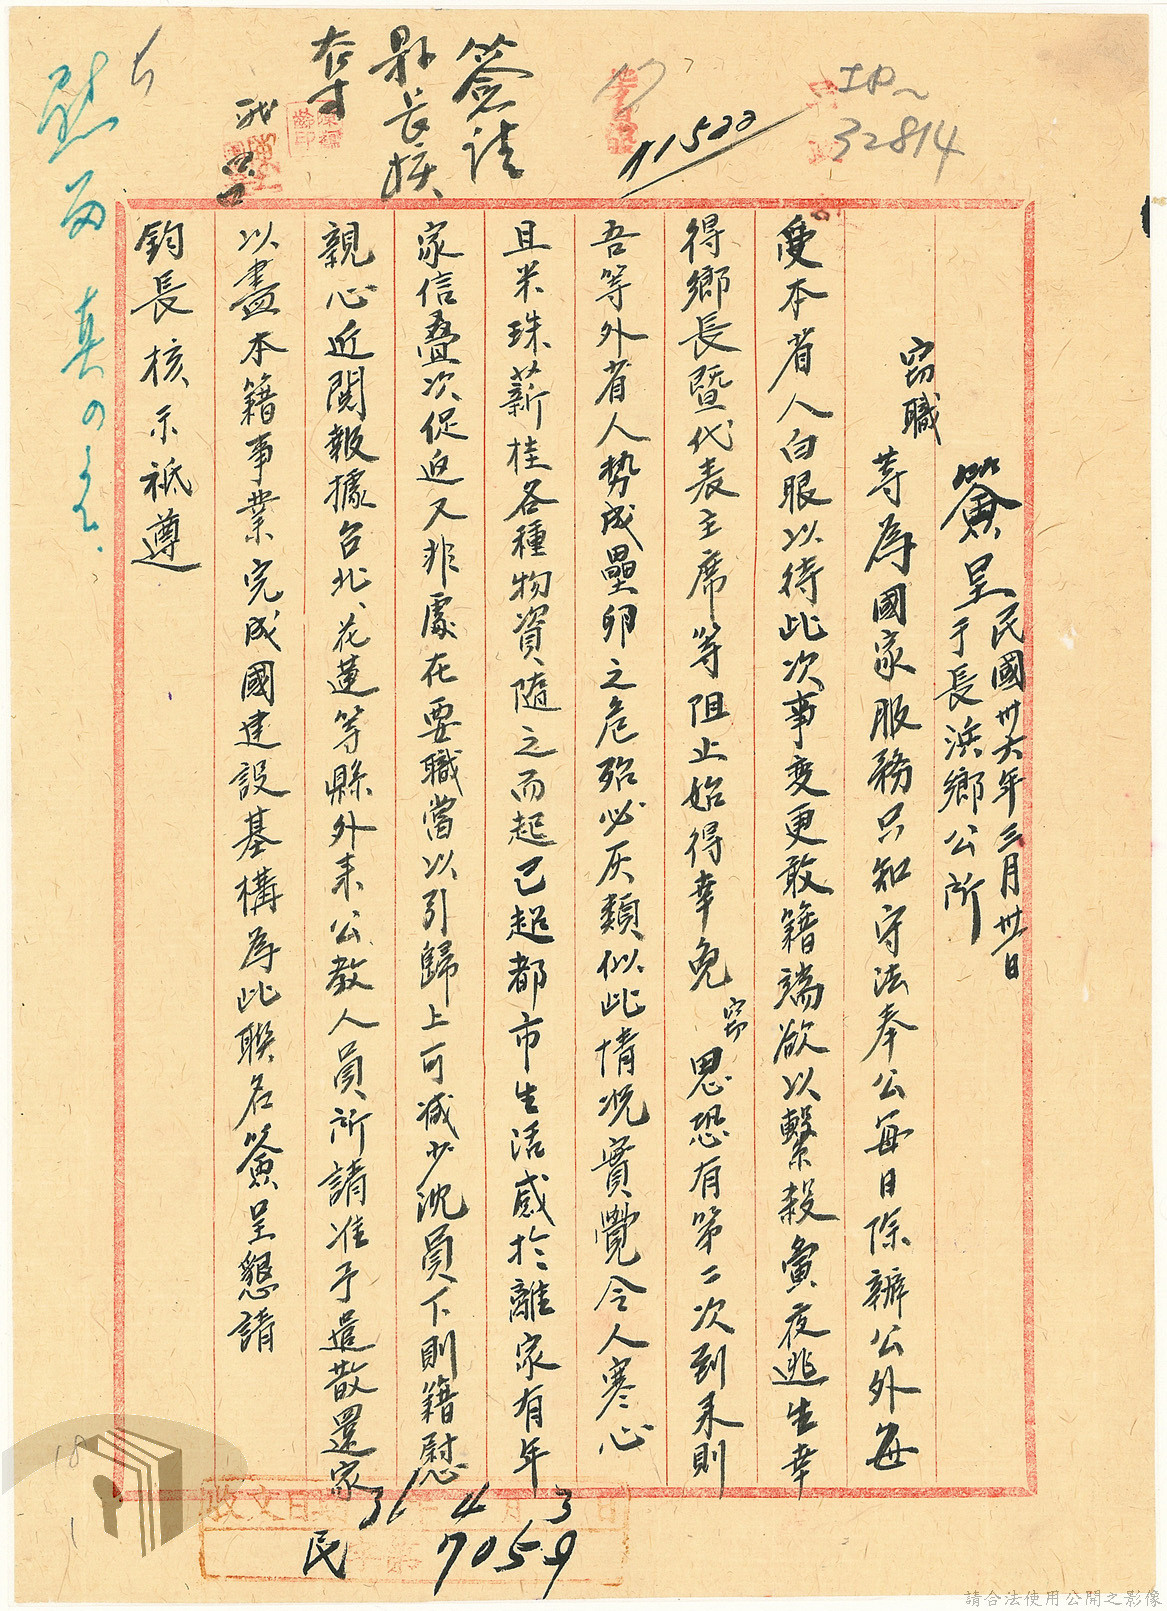 簽請
縣長核
奪
11522
32814
簽呈 民國卅六年三月卅一日
于長浜鄉公所
竊職等為國家服務只知守法奉公每日除辦公外每
受本省人白眼以待此次事變更敢籍端欲以繫殺彙夜逃生幸
得鄉長暨代表主席等阻止始得幸免竊思恐有第二次到來則
吾等外省人勢成壘卵之危殆必灰類似此情況實覺令人寒心
且米珠薪桂各種物資隨之而起已超都市生活感於離家有年
家信疊次促迫又非處在要職當以引歸上可減少沈員下則籍慰
親心近閱報據台北、花蓮等縣外來公教人員所請准予遣散還家
以盡本籍事業完成國建設基構為此聯名簽呈懇請
鈞長核示祗遵
慰留
收文日期 36年4月3日
民 字第 7059 號
18
1
請合法使用公開之影像